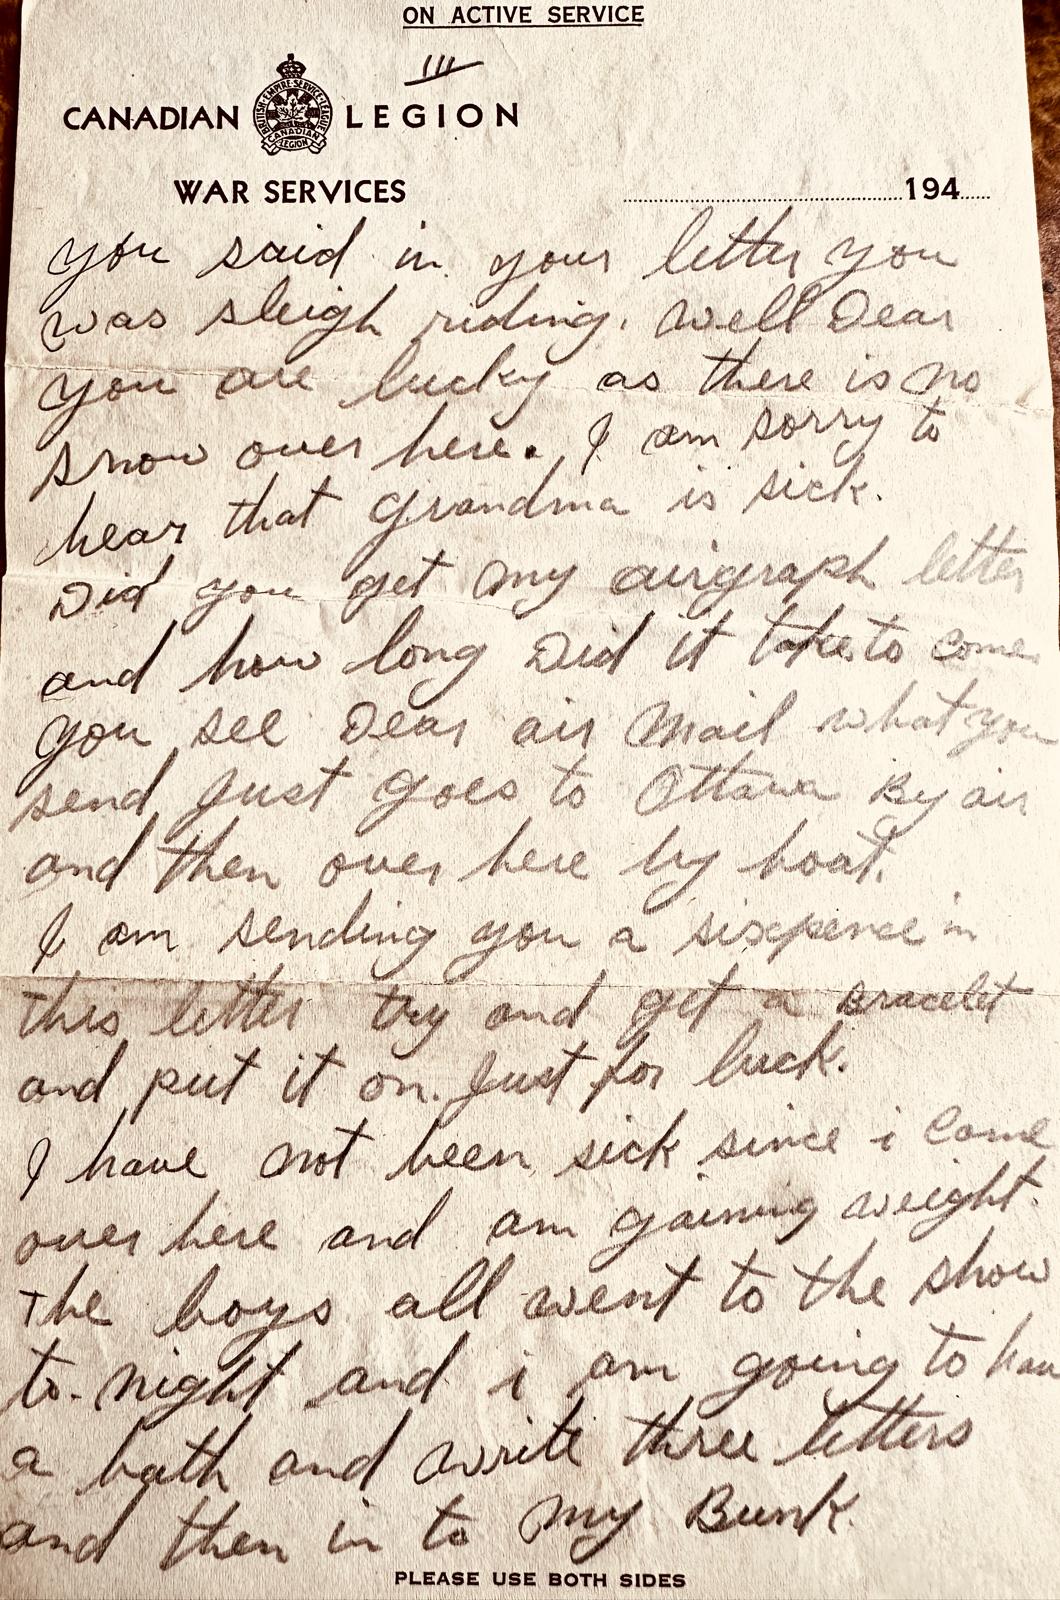 ON ACTIVE SERVICE
III
CANADIAN LEGION
BRITISH EMPIRE SERVICE LEAGUE
CANADIAN
LEGION
WAR SERVICES
194
you said in your letter you
was sleigh riding. well Dear
you are lucky as there is no
snow over here. I am sorry to
hear that Grandma is sick.
Did you get my airgraph letter
and how long Did it take to come.
you see Dear air Mail what you
send Just Goes to Ottawa By air
and then over here by boat.
I am sending you a sixpence in
this letter try and get a Bracelet
and put it on. Just for luck.
I have not been sick since i come
over here and am gaining weight.
The boys all went to the show
to-night and i am going to have
a bath and write three letters
and then in to my Bunk.
PLEASE USE BOTH SIDES